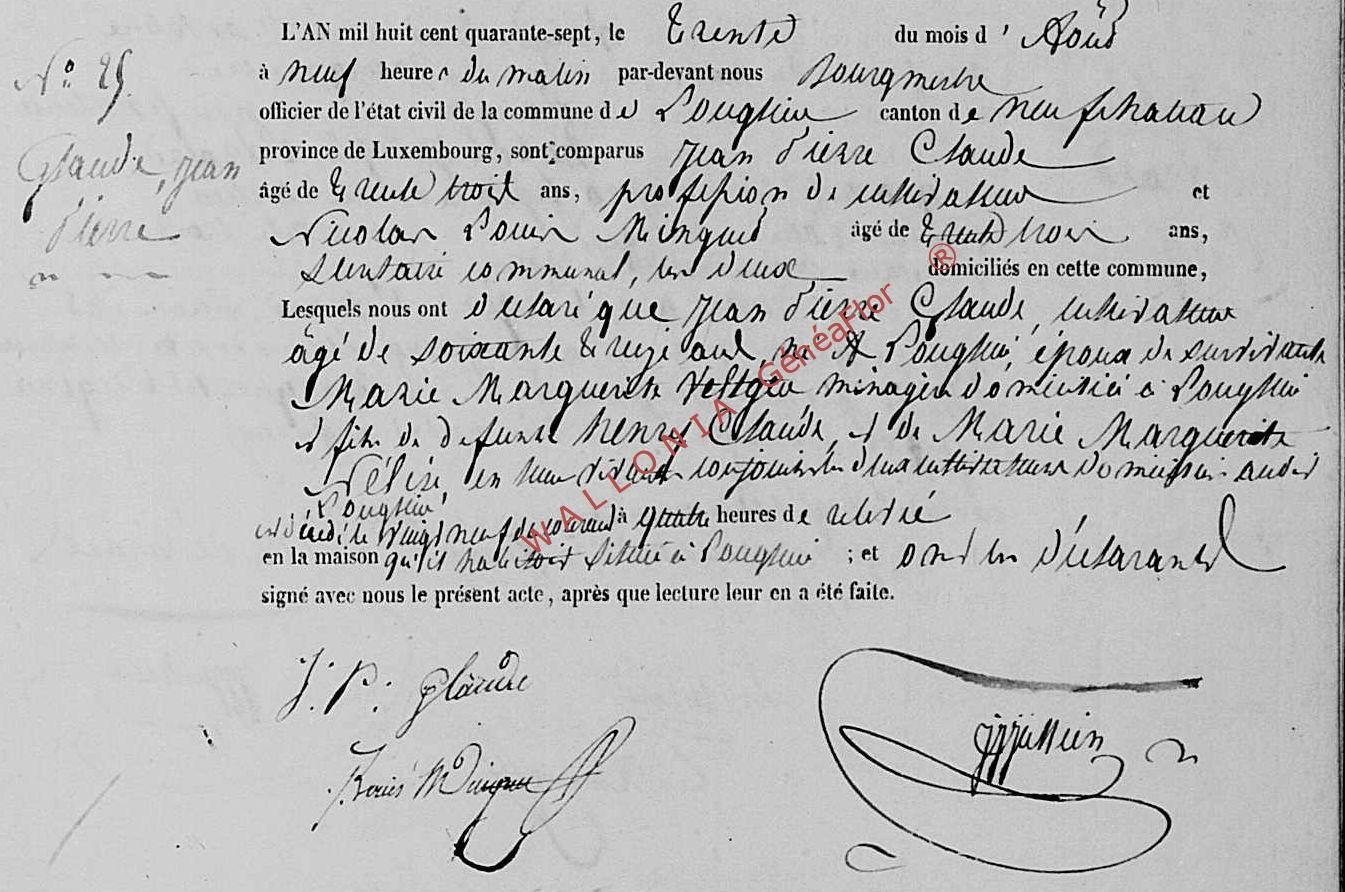 L'AN mil huit cent quarante-sept, le Trente du mois d' Août
N.° 25. à neuf heures du matin par-devant nous Bourgmestre
officier de l'état civil de la commune de Longlier canton de neufchateau
Glaude, Jean province de Luxembourg, sont comparus Jean Pierre Glaude
âgé de Trente trois ans, profession de cultivateur et
Pierre Nicolas Louis Mingue âgé de Trente trois ans,
secretaire communal, les deux domiciliés en cette commune,
Lesquels nous ont déclaré que Jean Pierre Glaude, cultivateur
âgé de soixante Treize ans, né A Longlier, époux de survivante
Marie Marguerite ménagère domiciliée à Longlier
et fils de defunts henry Glaude, et de Marie Marguerite
en leur vivant conjoints les deux cultivateurs domiciliés audit
Longlier
est décédé le vingt neuf du courant à quatre heures de relevé
en la maison qu'il habitoit située à Longlier ; et ont les déclarants
signé avec nous le présent acte, après que lecture leur en a été faite.
J. P. Glaude
Louis Mingue
WALLONIA Généaflor ®